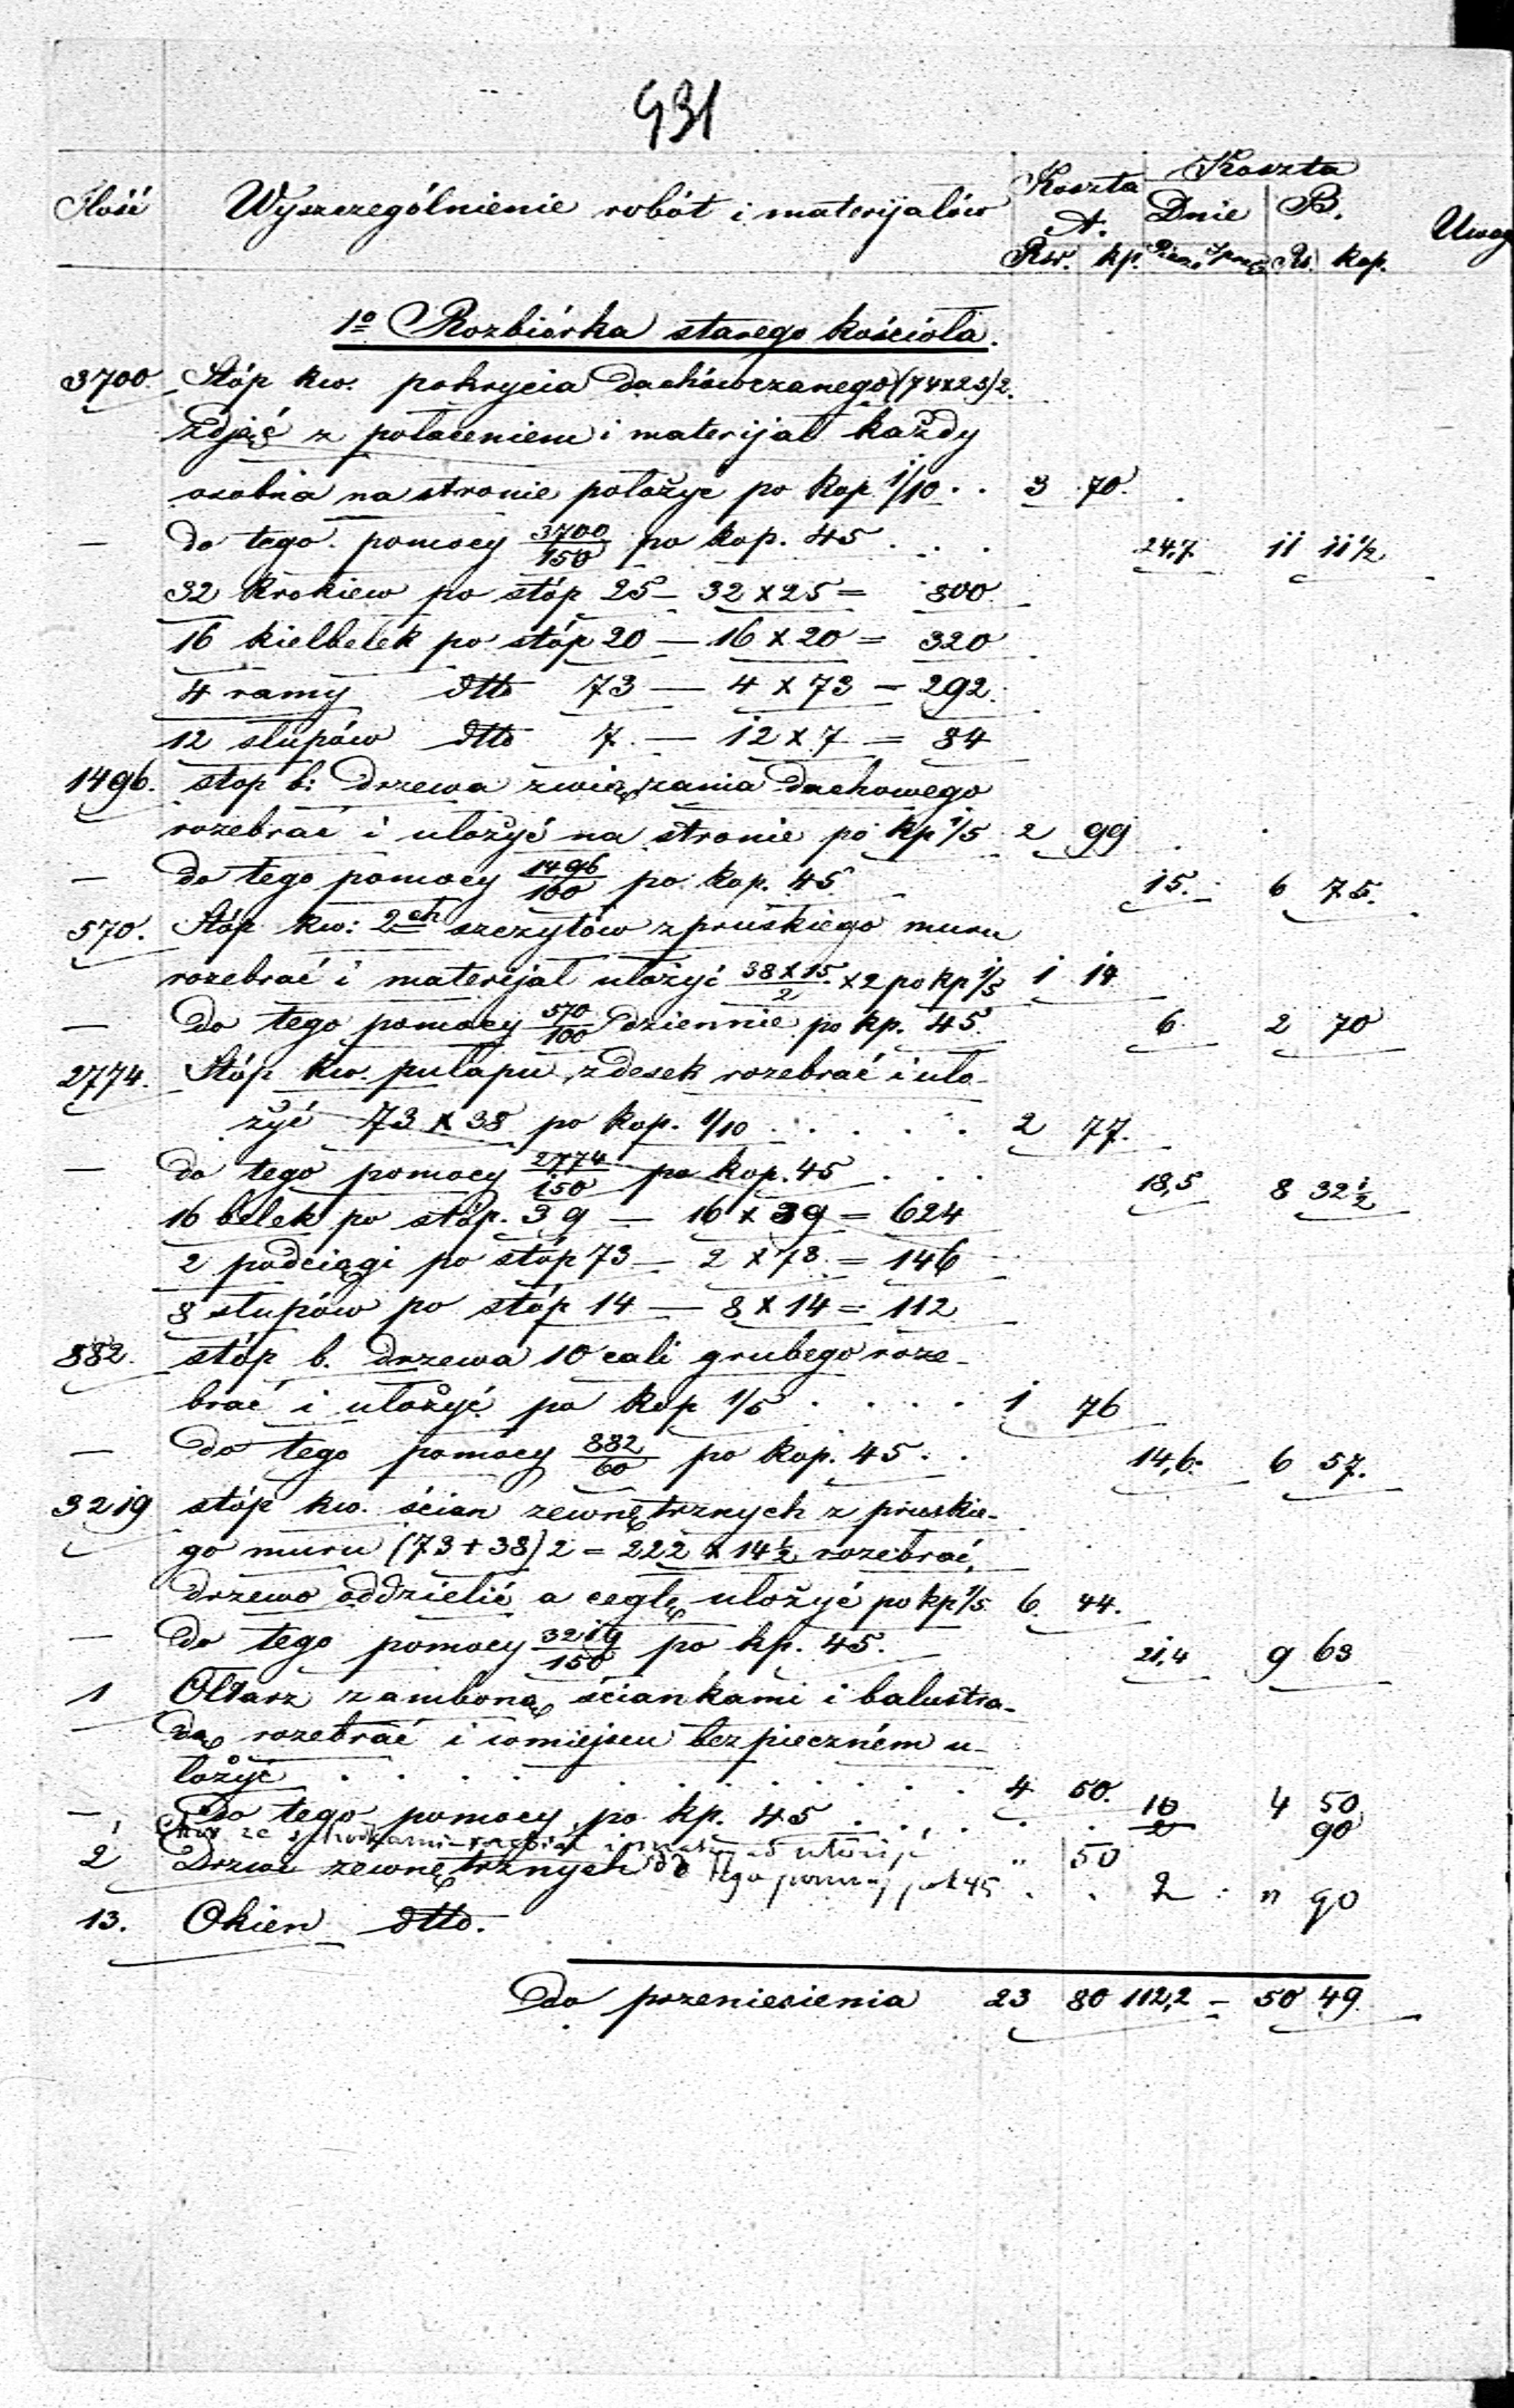 931
Ilość Wyszczególnienie robót i materijałów Koszta A. Koszta B. Dnie Uwag
Rsr. kp. Piesze Rs. kop.
1o Rozbiórka starego kościoła.
3700. Stóp kw. pokrycia dachówczanego (74x25)2.
zdjąć z połaceniem i materijał każdy
osobno na stronie położyć po kop. 1/10 . . 3 70.
— do tego pomocy 3700/150 po kop. 45 . . . 24,7 11 11 1/2
32 krokiew po stóp 25 — 32 x 25 = 800.
16 kielbelek po stóp 20 — 16 x 20 = 320
4 ramy dtto 73 — 4 x 73 = 292.
12 słupów dtto 7. — 12 x 7 = 84
1496. stop b: drzewa związania dachowego
rozebrać i ułożyć na stronie po kp 1/5 2 99
— do tego pomocy 1496/100 po kop. 45 15. 6 75.
570. Stóp kw: 2ch szczytów z pruskiego muru
rozebrać i materijał ułożyć 38 x 15/2 x 2 po kp 1/5 1 14
— do tego pomocy 570/100 dziennie po kp. 45. 6 2 70
2774. Stóp kw. pułapu z desek rozebrać i uło-
żyć 73 x 38 po kop. 1/10 . . . . . 2 77.
— do tego pomocy 2774/150 po kop. 45 . . . 18,5 8 32 1/2
16 belek po stóp. 39 — 16 x 39 = 624
2 podciągi po stóp 73 — 2 x 73 = 146
8 słupów po stóp 14 — 8 x 14 = 112
882. stóp b. drzewa 10 cali grubego roze-
brać i ułożyć po kop 1/5 . . . . 1 76
— do tego pomocy 882/60 po kop. 45 . . 14,6 6 57.
3219 stóp kw. ścian zewnętrznych z pruskie-
go muru (73+38)2 = 222 x 14 1/2 rozebrać,
drzewo oddzielić a cegłę ułożyć po kp 1/5 6. 44.
— do tego pomocy 3219/150 po kp. 45. 21,4 9 63
1 Ołtarz z amboną ściankami i balustra-
dą rozebrać i w miejscu bezpieczném u-
łożyć . . . . . . . . . . 4 50.
— do tego pomocy po kp. 45 . . . . . 10 4 50
1 Chór ze schodkami rozebrać i ułożyć " 50 90
2 Drzwi zewnętrznych do tego pomocy po k 45 . . 2 " 90
13. Okien dtto.
Do przeniesienia 23 80 112,2 — 50 49.